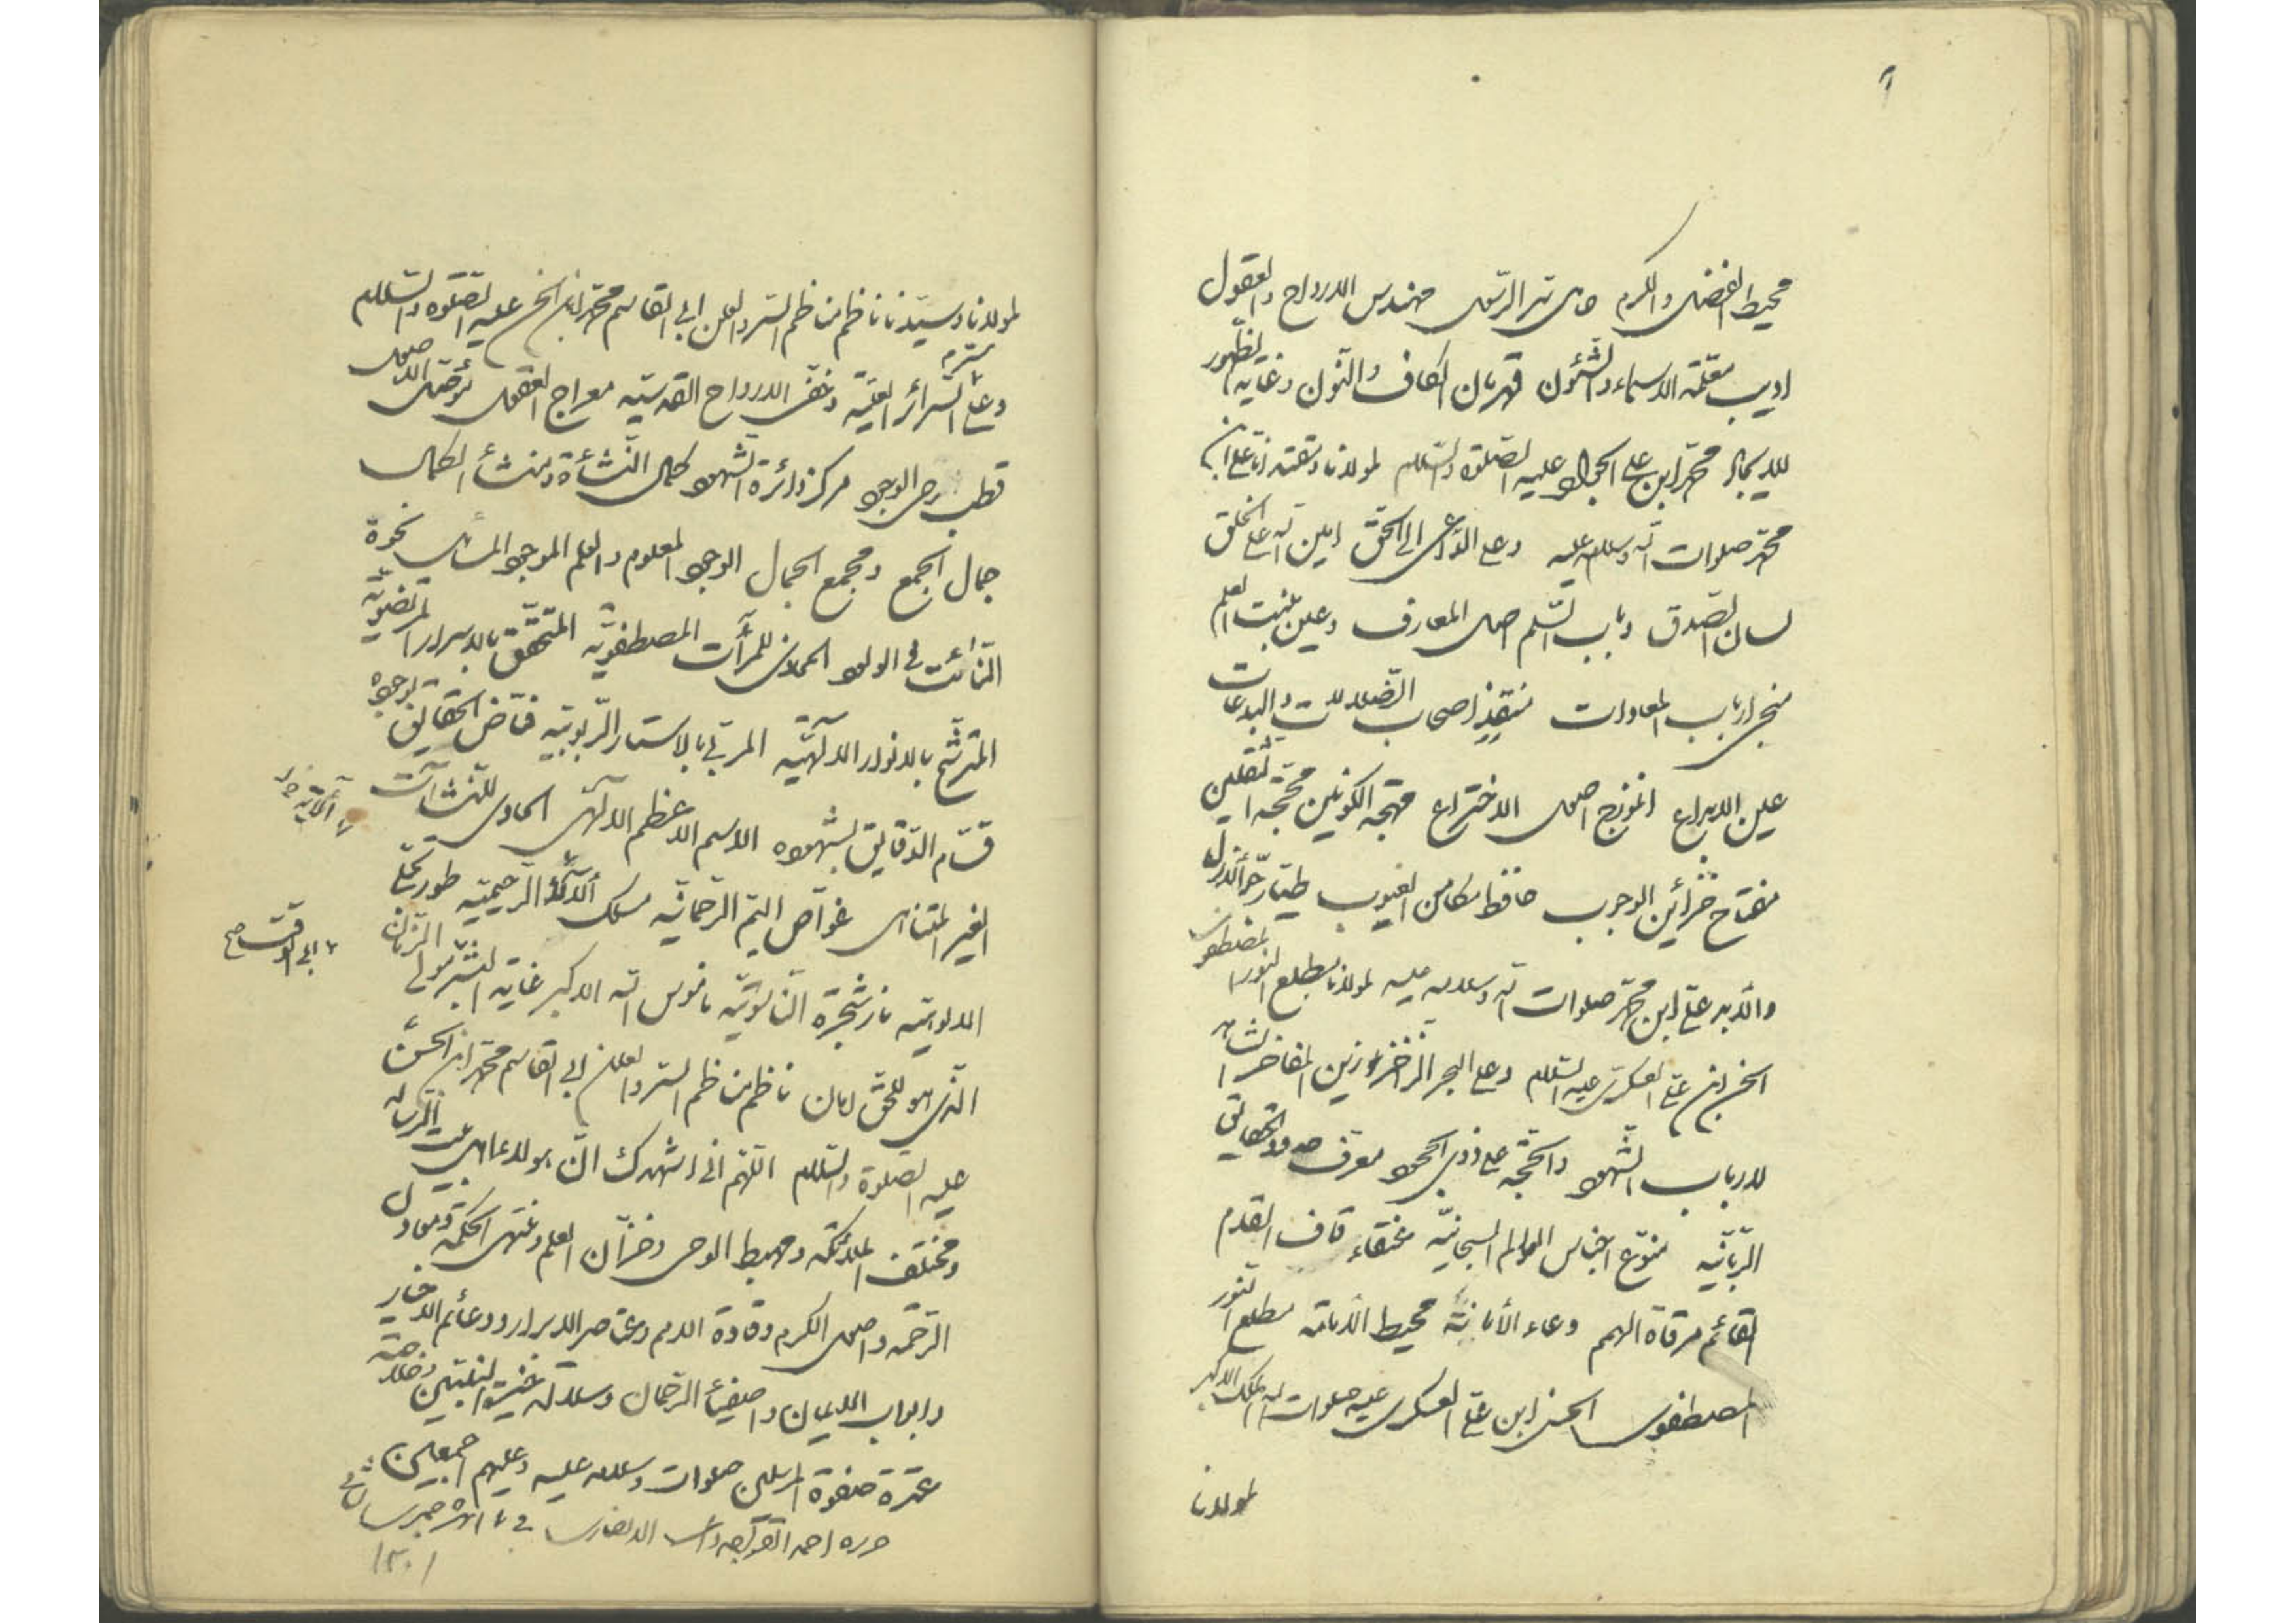 محيط الفضل والكرم حامل سر الرسول مهندس الارواح والعقول
اديب معلمة الاسماء والشئون قهرمان الكاف والنون وغاية الظهور
للايجاد محمد ابن علي الجواد عليه الصلوة والسلام لمولانا وثقتنا علي ابن
محمد صلوات الله وسلامه عليه وعلى الداعي الى الحق امين الله على الخلق
لسان الصدق وباب السلم اصل المعارف وعين منبت العلم
منجي ارباب المعادات منقذ اصحاب الضلالات والبدعات
عين الابداع انموذج اصل الاختراع مهجة الكونين محجة الثقلين
مفتاح خزائن الوجوب حافظ مكامن الغيوب طيار جو الازل
والابد علي ابن محمد صلوات الله وسلامه عليه لمولانا مطلع النور المصطفوي
الحسن ابن علي العسكري عليه السلام وعلى البحر الزاخر زين المفاخر الشاهد
لارباب الشهود والحجة على ذوي الجحود معرف حدود حقائق
الربانية منوع اجناس العوالم السبحانية عنقاء قاف القدم
القائم مرقاة الهمم وعاء الأمانة محيط الامامة مطلع النور
المصطفوي الحسن ابن علي العسكري عليه صلوات الله الملك الاكبر
لمولانا
لمولانا وسيدنا ناظم مناظم السر والعلن ابي القاسم محمد ابن الحسن عليه الصلوة والسلام
وعلى السرائر العلية وخفي الارواح القدسية معراج العقول موصل الاصول
قطب رحى الوجود مركز دائرة الشهود كمال النشأة ومنشأ الكمال
جمال الجمع ومجمع الجمال الوجود المعلوم والعلم الموجود المائل نحوه
الثابت في الولود المحاذي للمرآت المصطفوية المتحقق بالاسرار المرتضوية
المترشح بالانوار الالهية المربى بالاستار الربوبية فياض الحقايق بوجوده
قسام الدقايق بشهوده الاسم الاعظم الالهي الحاوي للنشآت
الغير المتناهي غواص اليم الرحمانية مسلك الآلاء الرحيمية طور تجلي
الالوهية نار شجرة الناسوتية ناموس الله الاكبر غاية البشر مولى الزمان
الذي هو للحق امان ناظم مناظم السر والعلن ابي القاسم محمد ابن الحسن
عليه الصلوة والسلام اللهم اني اشهدك ان هولاء اهل بيت الرسالة
ومختلف الملائكة ومهبط الوحي وخزان العلم ومنتهى الحكمة ومعادن
الرحمة واصول الكرم وقادة الامم وعناصر الابرار ودعائم الاخيار
وابواب الايمان واصفياء الرحمان وسلالة خيرة النبيين وخلاصة
عترة صفوة المرسلين صلوات وسلامه عليه وعليهم اجمعين